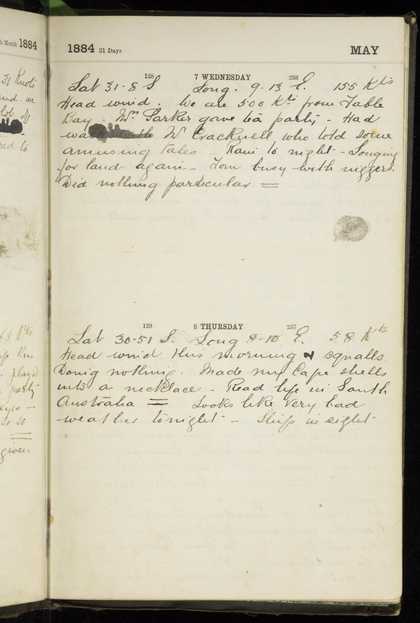 h Month 1884
1884 31 Days MAY
128 7 WEDNESDAY 238
Lat 31-8 S Long. 9-13 E. 155 Kts
Head wind. We are 500 Kts from Table
Bay. Mrs Parker gave tea party - Had
Mr Cracknell who told some
amusing tales - Rain to night - Longing
for land again - Tom busy with nigger.
Did nothing particular =
129 8 THURSDAY 237
Lat 30-51 S. Long 8-10 E. 58 Kts
Head wind this morning & squalls
Doing nothing. Made my Cape shells
into a necklace - Read life in South
Australia = Looks like very bad
weather tonight - Ship in sight